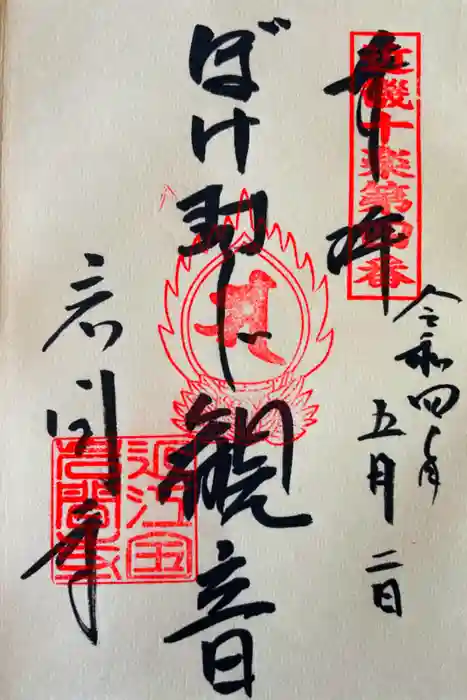 奉拝
近畿十楽第四番
令和四年
五月二日
ぼけ封じ観音
岩間寺
近江
岩間寺